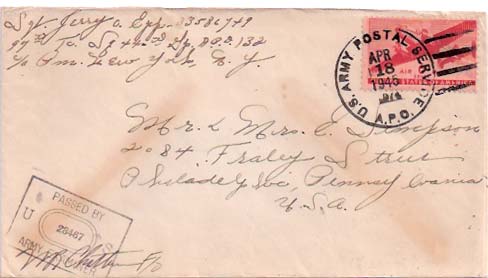 Sgt. Jerry O. Epp. 33586749
97th Tr. Sq 440th Gp. A.P.O. 132
c/o Pm. New York, N.Y.
U.S. ARMY POSTAL SERVICE
APR
18
1945
A.P.O.
AIR
OF AMERICA
Mr. & Mrs. E. Simpson
2084 Fraley Street
Philadelphia, Pennsylvania
U.S.A.
PASSED BY
U S
28467
ARMY EXAMINER